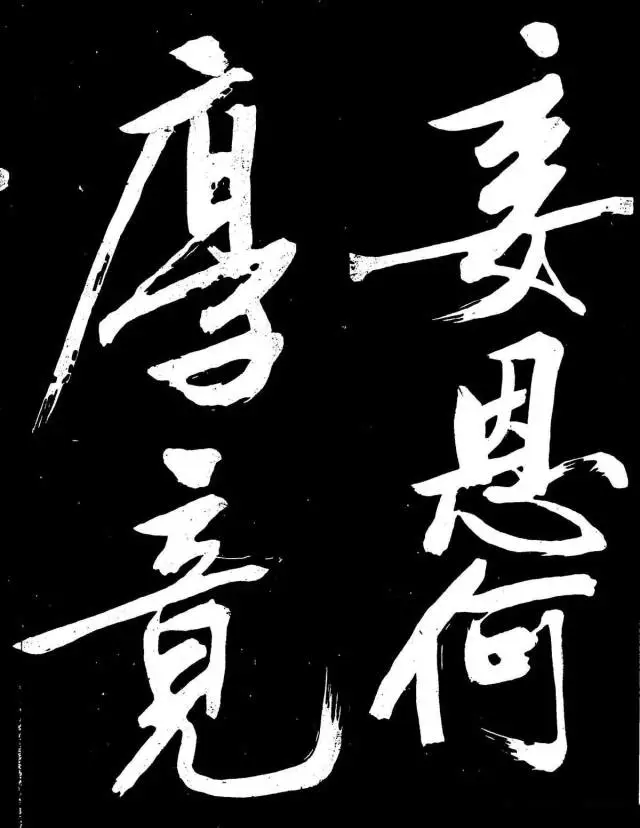 妾恩何
厚竟